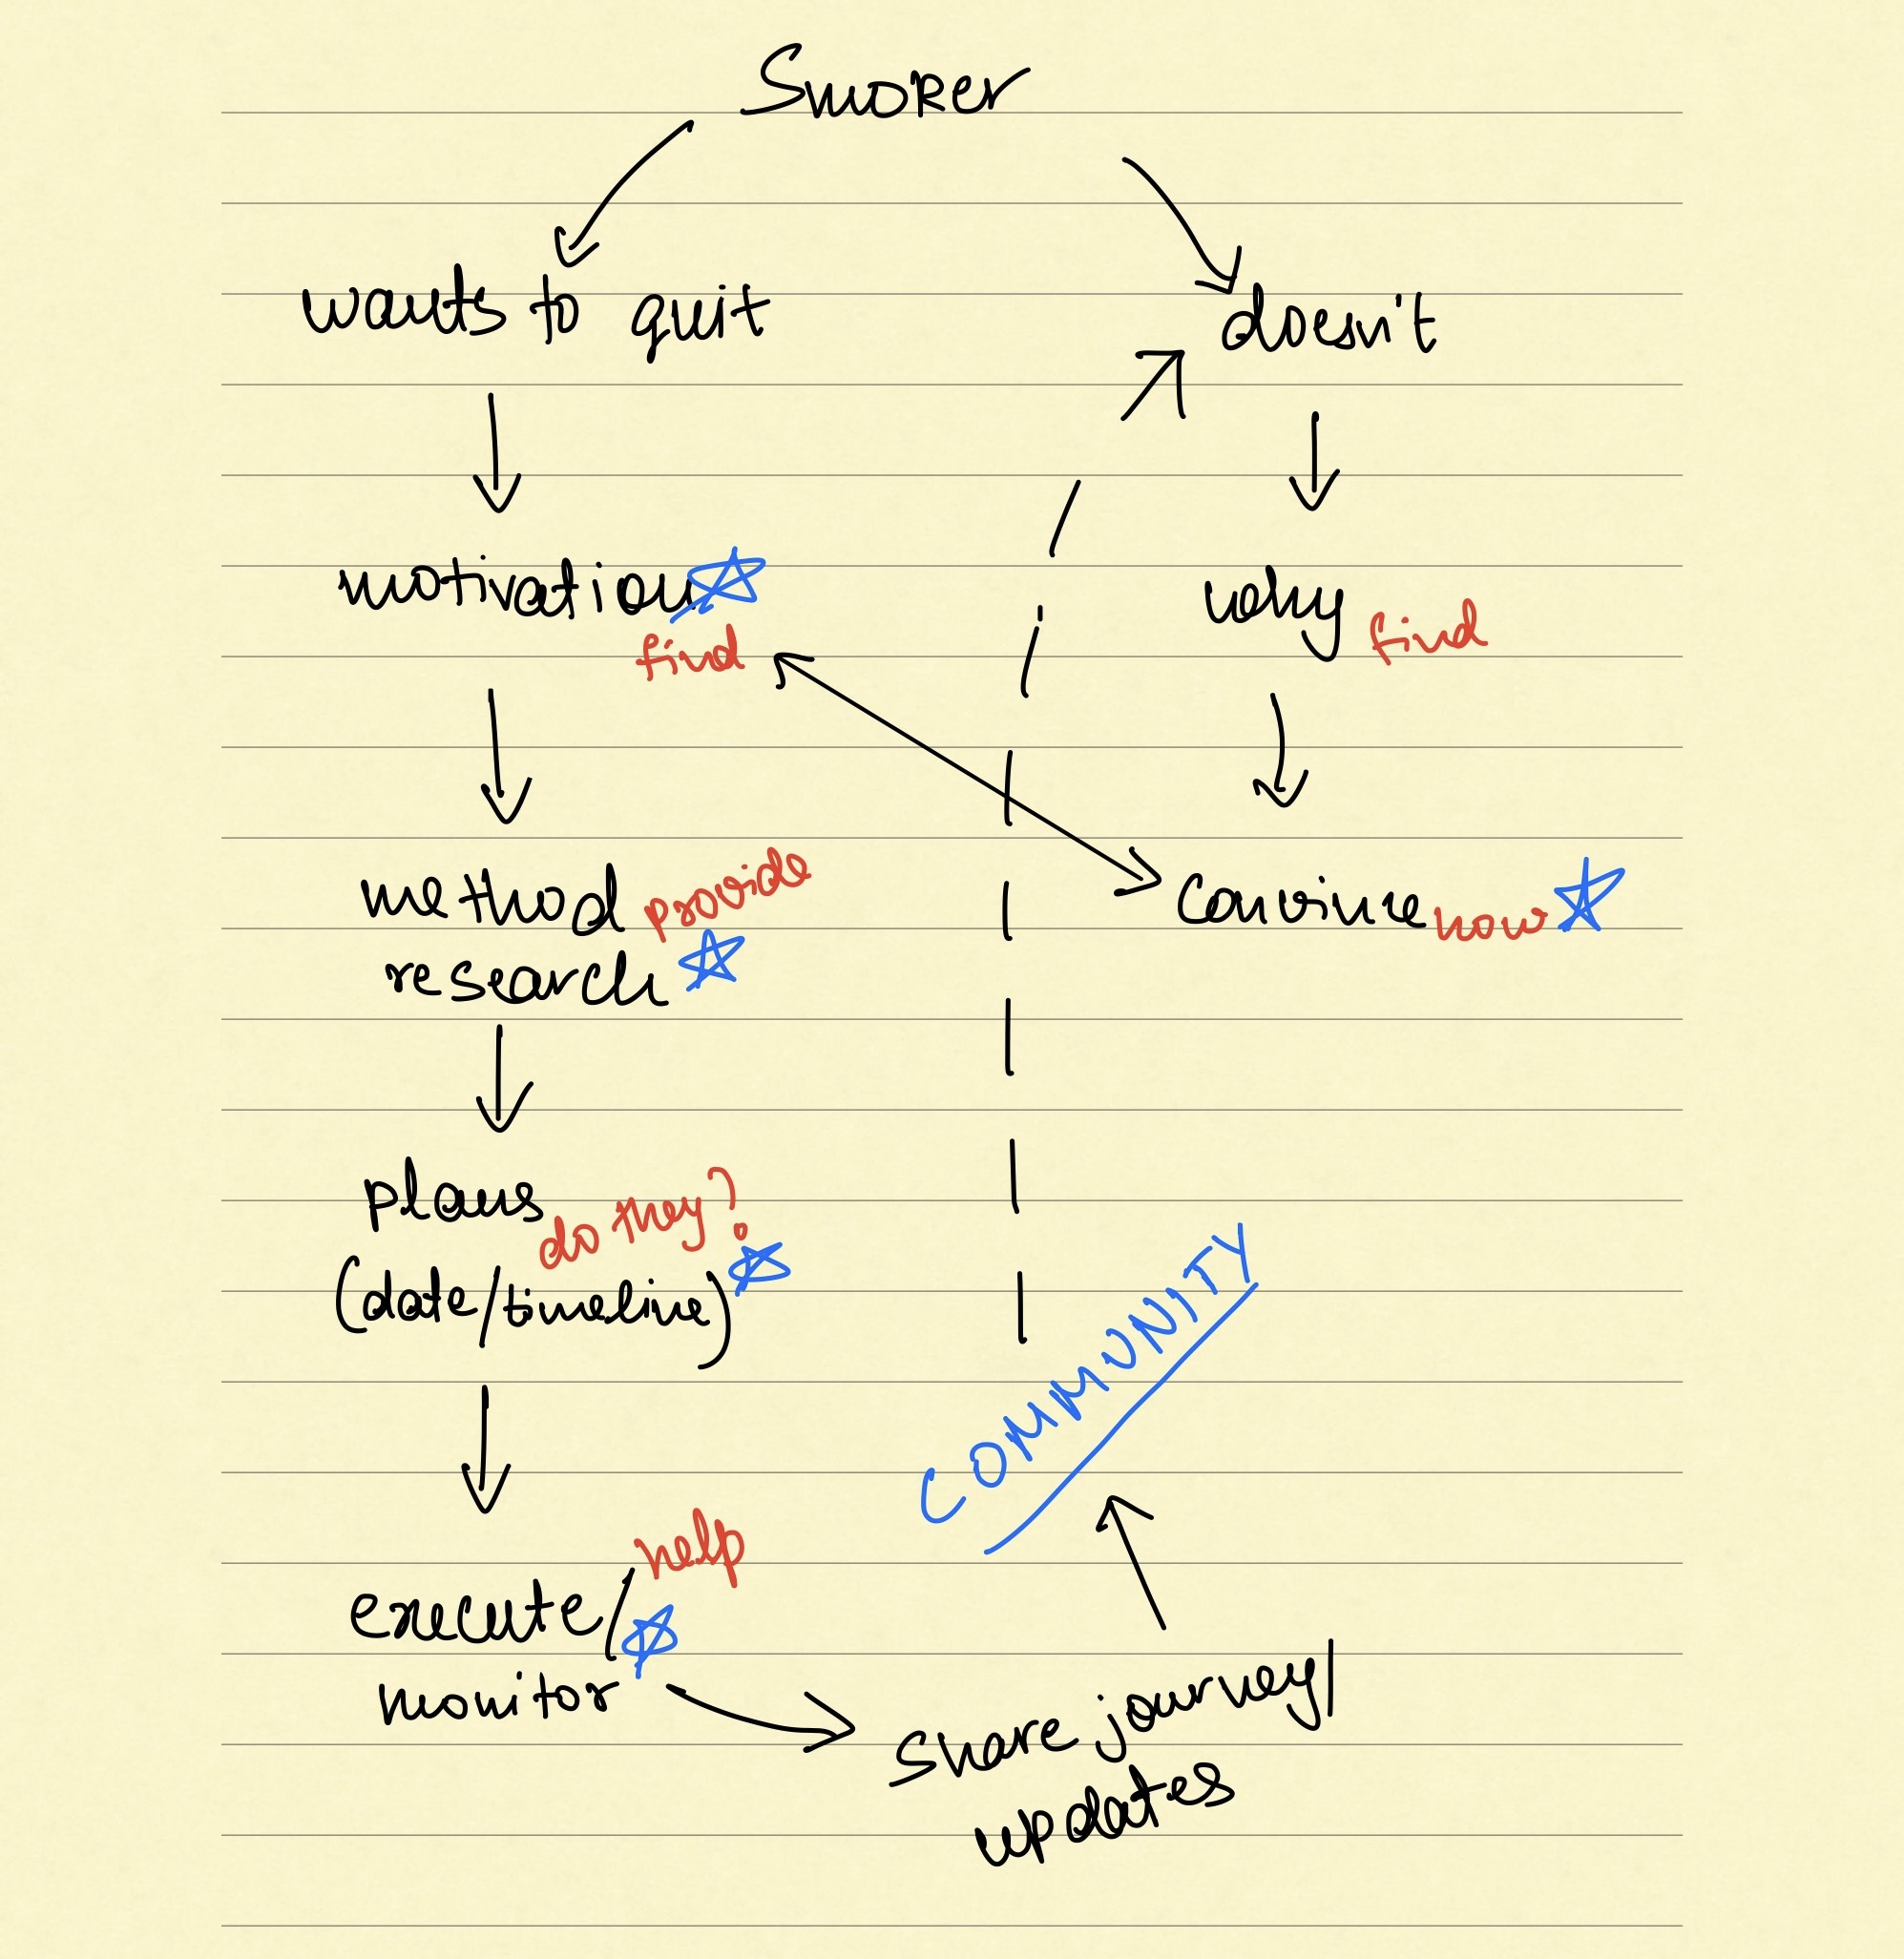 Smoker
wants to quit
doesn't
motivation
find
why
find
method provide
research
Convince how
plans
do they?
(date/timeline)
COMMUNITY
help
execute/
monitor
Share journey/
updates